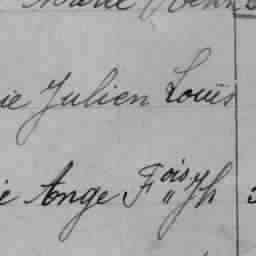 Marie
ie Julien Louis
ie Ange Fois Jh